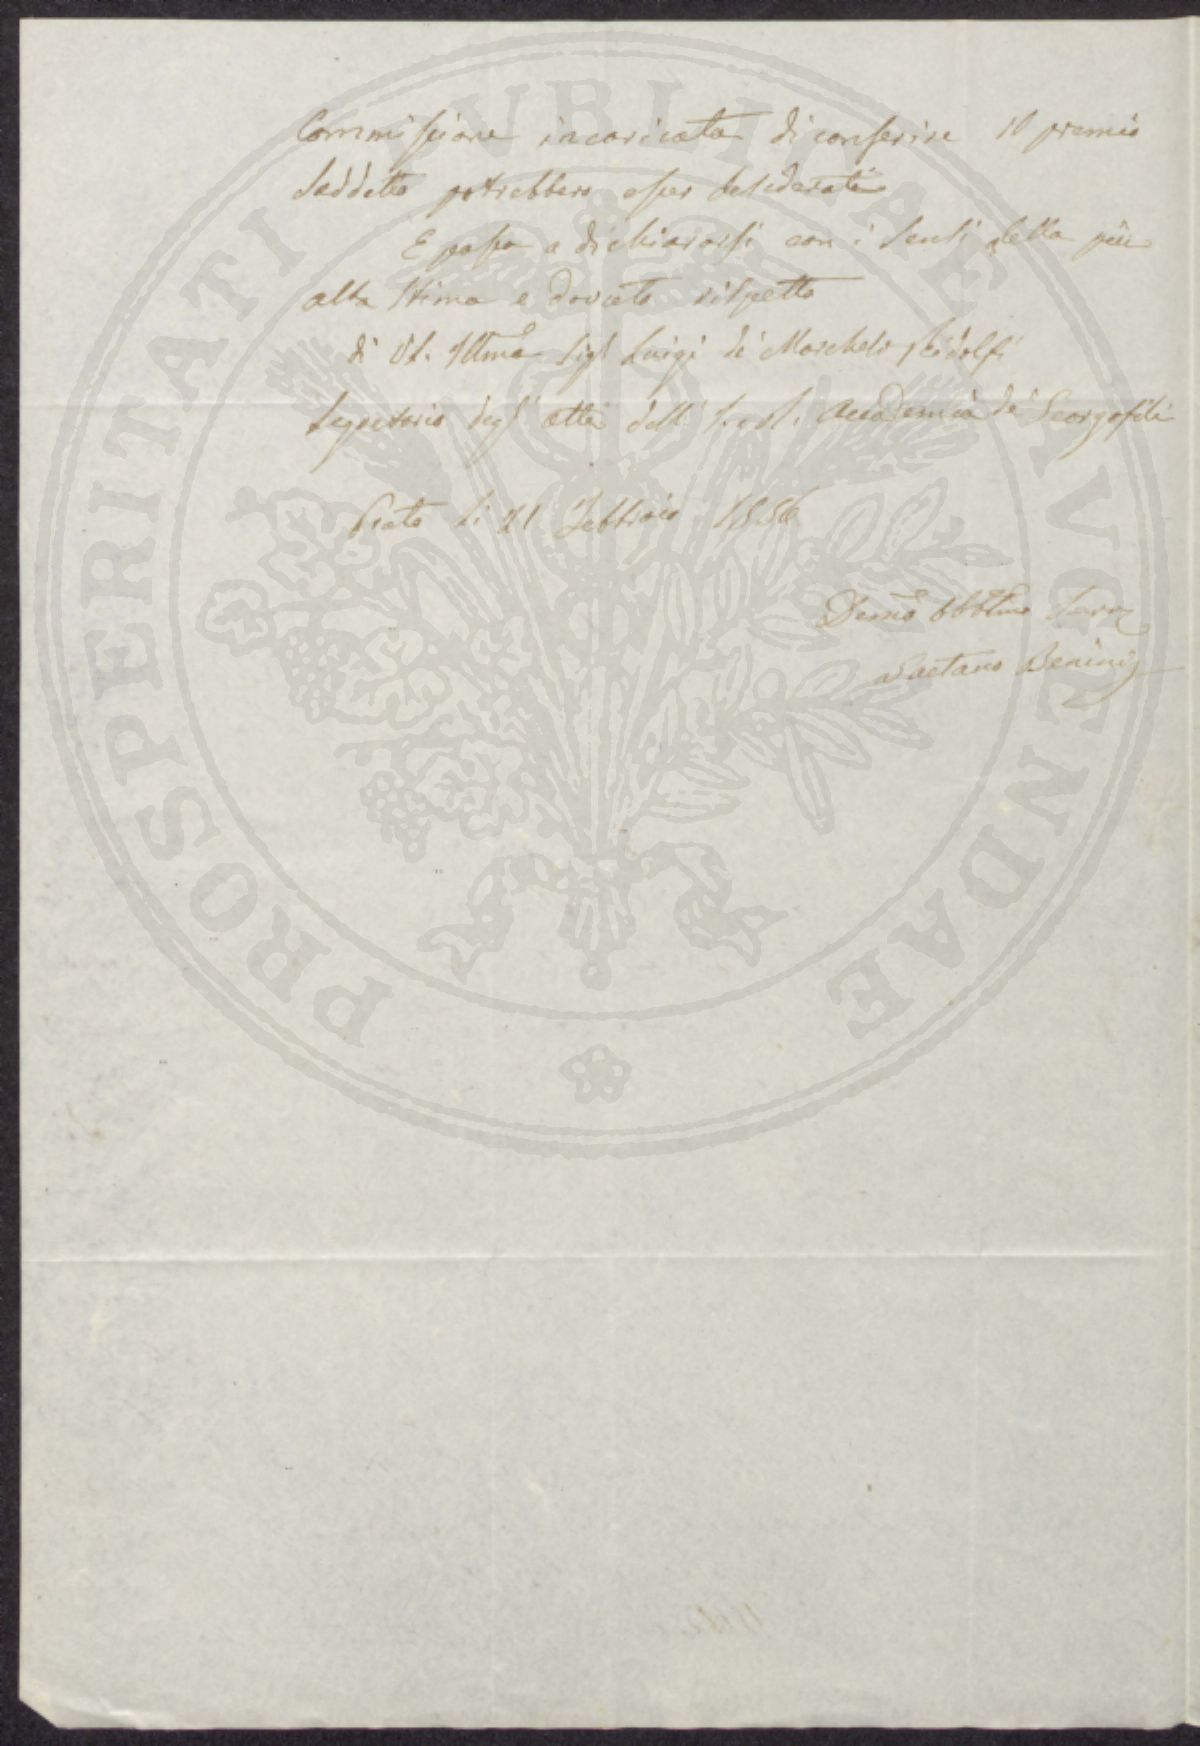 Commissione incaricata di conferire il premio
suddetto potrebbero esser desiderati
E passo a dichiararsi con i sensi della più
alta stima e dovuto rispetto
di VS. Illma Sigr Luigi de Marchesi Ridolfi
Segretario degl' atti dell' I. e R. Accademia de' Georgofili
Prato li 21 Febbraio 1856
Demo Obblmo Serv
Gaetano Benini
PROSPERITATI PVBLICAE AVGENDAE